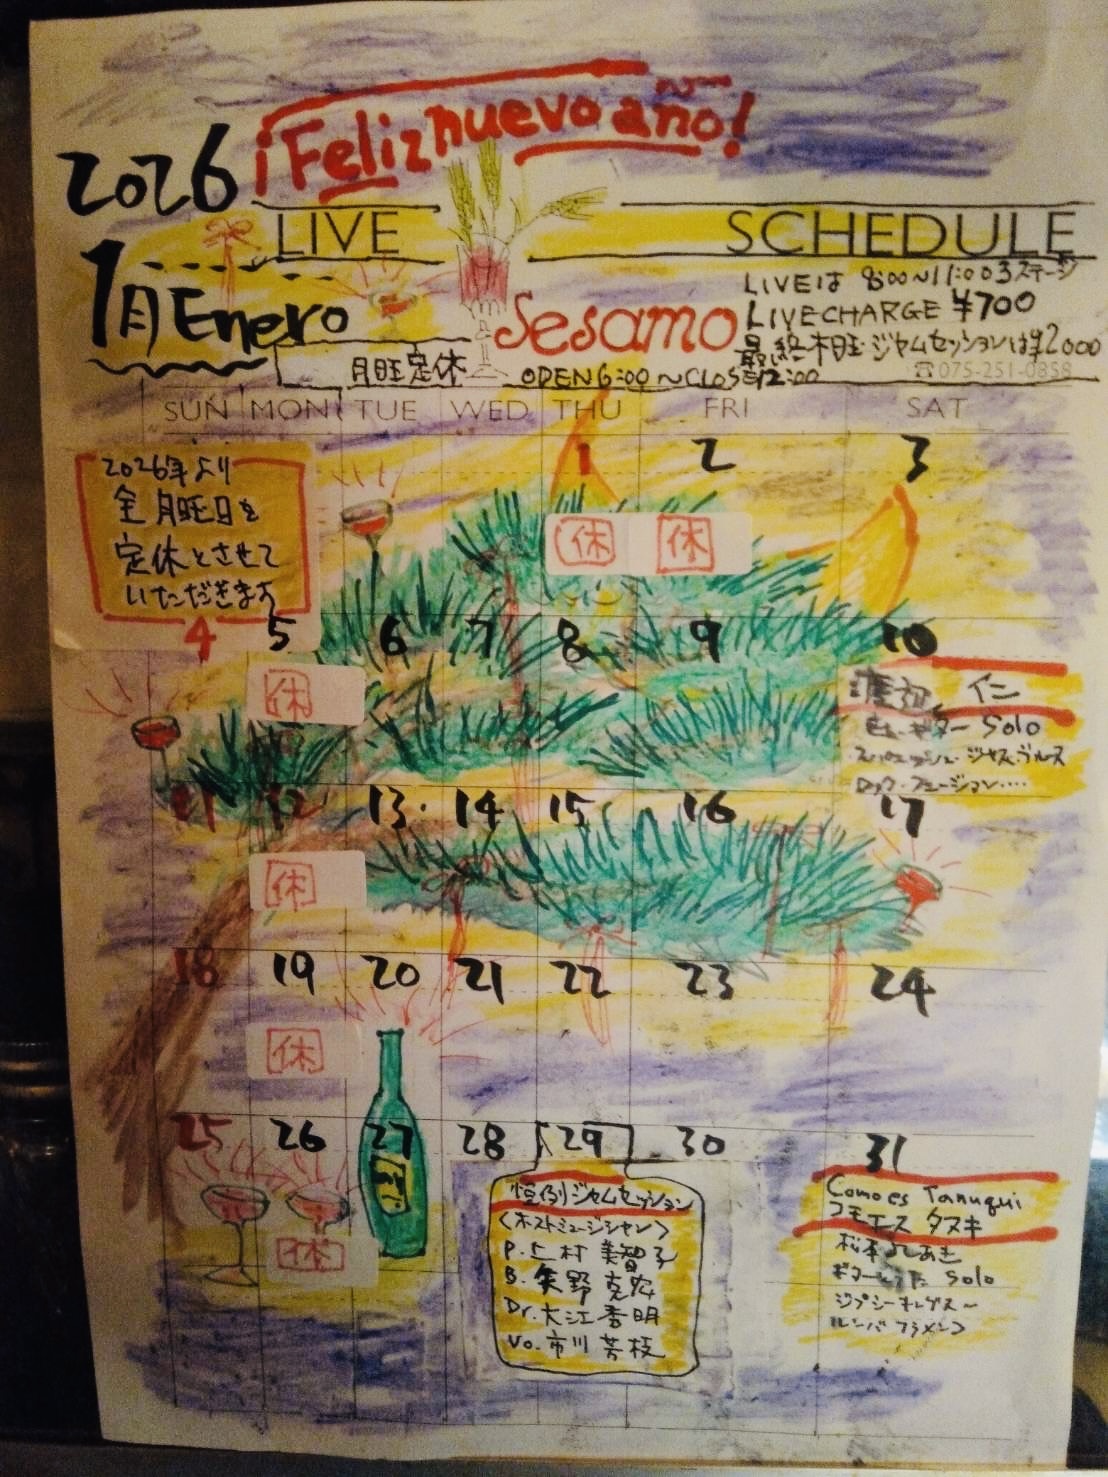 ¡Feliz nuevo año!
2026
LIVE SCHEDULE
1月 Enero
Sesamo
LIVEは 8:00～11:00 3ステージ
LIVECHARGE ¥700
最終木曜・ジャムセッションは¥2000
☎075-251-0858
月曜定休
OPEN 6:00～CLOSE 12:00
SUN MON TUE WED THU FRI SAT
2026年より
全月曜日を
定休とさせて
いただきます
1 2 3
休 休
4 5 6 7 8 9 10
休
仁
ギター Solo
ジャズ・ブルース
ロック・フュージョン・・・・
11 12 13 14 15 16 17
休
18 19 20 21 22 23 24
休
25 26 27 28 29 30 31
休
恒例ジャムセッション
〈ホストミュージシャン〉
P. 上村 美智子
B. 矢野 克宏
Dr. 大江 秀明
Vo. 市川 芳枝
Como es Tanuqui
コモエス タヌキ
松本 よしあき
ギター Solo
ルンバ フラメンコ